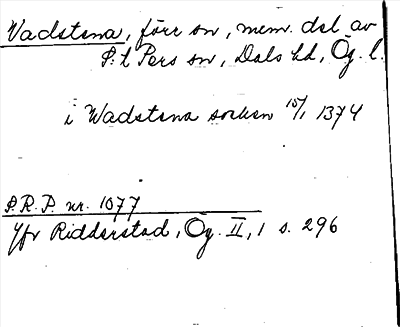 Vadstena, förr sn, mem. del av
S:t Pers sn, Dals hd, Ög. l.
i Wadstena socken 15/1 1374
S.R.P. nr. 1077
Jfr Ridderstad, Ög. II, 1 s. 296